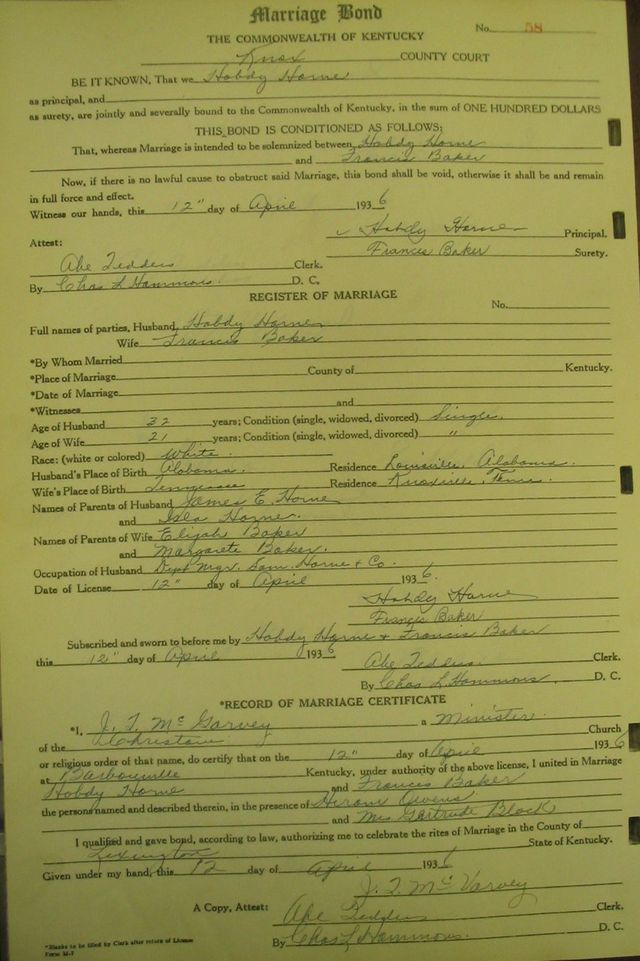 Marriage Bond
No. 58
THE COMMONWEALTH OF KENTUCKY
Knox COUNTY COURT
BE IT KNOWN, That we Hobdy Horne
as principal, and
as surety, are jointly and severally bound to the Commonwealth of Kentucky, in the sum of ONE HUNDRED DOLLARS
THIS BOND IS CONDITIONED AS FOLLOWS:
That, whereas Marriage is intended to be solemnized between Hobdy Horne
and Francis Baker
Now, if there is no lawful cause to obstruct said Marriage, this bond shall be void, otherwise it shall be and remain
in full force and effect.
Witness our hands, this 12" day of April 1936
Hobdy Horne Principal.
Attest: Frances Baker Surety.
Abe Tedders Clerk.
By Chas L Hammons. D. C.
REGISTER OF MARRIAGE
No.
Full names of parties, Husband, Hobdy Horne
Wife Francis Baker
*By Whom Married
*Place of Marriage County of Kentucky.
*Date of Marriage
*Witnesses and
Age of Husband 32 years; Condition (single, widowed, divorced) Single.
Age of Wife 21 years; Condition (single, widowed, divorced) "
Race: (white or colored) White.
Husband's Place of Birth Alabama. Residence Louisville, Alabama.
Wife's Place of Birth Tennessee Residence Knoxville, Tenn.
Names of Parents of Husband James E. Horne
and Isla Horne.
Names of Parents of Wife Elijah Baker
and Margarete Baker.
Occupation of Husband Dept Mgr. Sam. Horne & Co.
Date of License 12" day of April 1936.
Hobdy Horne
Frances Baker
Subscribed and sworn to before me by Hobdy Horne & Francis Baker
this 12" day of April 1936 Abe Tedders. Clerk.
By Chas L. Hammons. D. C.
*RECORD OF MARRIAGE CERTIFICATE
*I, J. T. Mc Garvey a Minister.
of the Christain Church
or religious order of that name, do certify that on the 12" day of April 1936
at Barbourville Kentucky, under authority of the above license, I united in Marriage
Hobdy Horne and Frances Baker
the persons named and described therein, in the presence of Hiram Owens
and Mrs Gertrude Black
I qualified and gave bond, according to law, authorizing me to celebrate the rites of Marriage in the County of
Lexington State of Kentucky.
Given under my hand, this 12 day of April 1936
J. T. Mc Varvey
A Copy, Attest: Abe Tedders Clerk.
By Chas L Hammons. D. C.
*Blanks to be filled by Clerk after return of License